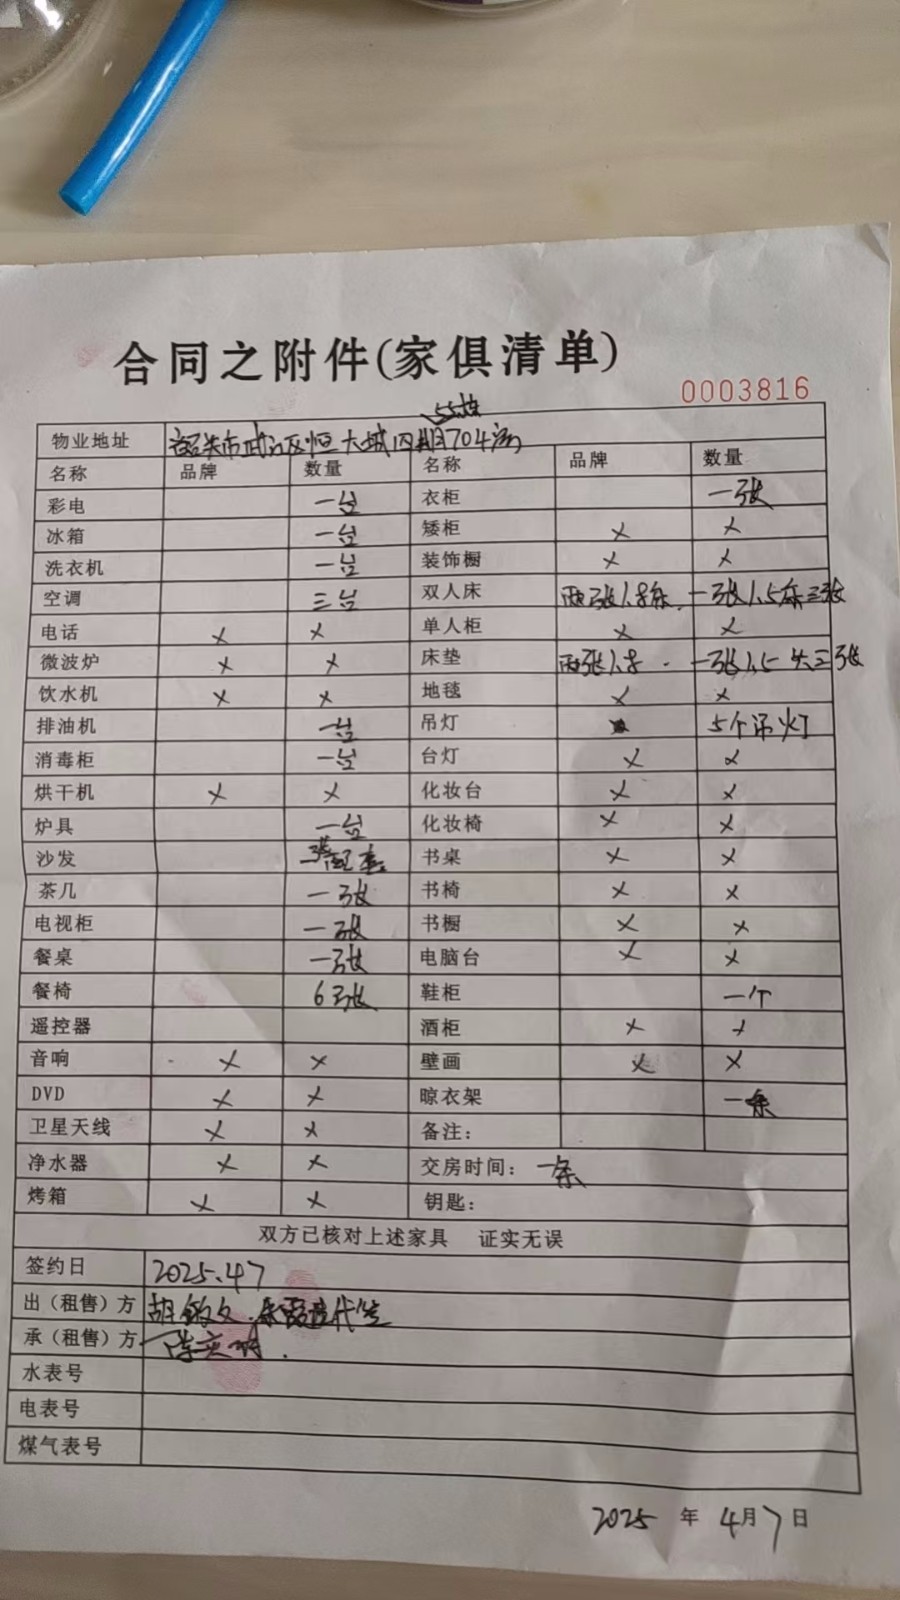 合同之附件(家俱清单)
0003816
55栋
物业地址 市武江区恒大城四期704房
名称 品牌 数量 名称 品牌 数量
彩电 一台 衣柜 一张
冰箱 一台 矮柜 × ×
洗衣机 一台 装饰橱 × ×
空调 三台 双人床 两张1.8床.一张1.5床三张
电话 × × 单人柜 × ×
微波炉 × × 床垫 两张1.8.一张1.5 共三张
饮水机 × × 地毯 × ×
排油机 一台 吊灯 5个吊灯
消毒柜 一台 台灯 × ×
烘干机 × × 化妆台 × ×
炉具 一台 化妆椅 × ×
沙发 书桌 × ×
茶几 一张 书椅 × ×
电视柜 一张 书橱 × ×
餐桌 一张 电脑台 × ×
餐椅 6张 鞋柜 一个
遥控器 酒柜 × ×
音响 × × 壁画 × ×
DVD × × 晾衣架 一条
卫星天线 × × 备注：
净水器 × × 交房时间： 一条
烤箱 × × 钥匙：
双方已核对上述家具 证实无误
签约日 2025.4.7
出（租售）方 胡 代签
承（租售）方 陈
水表号
电表号
煤气表号
2025 年 4月7日